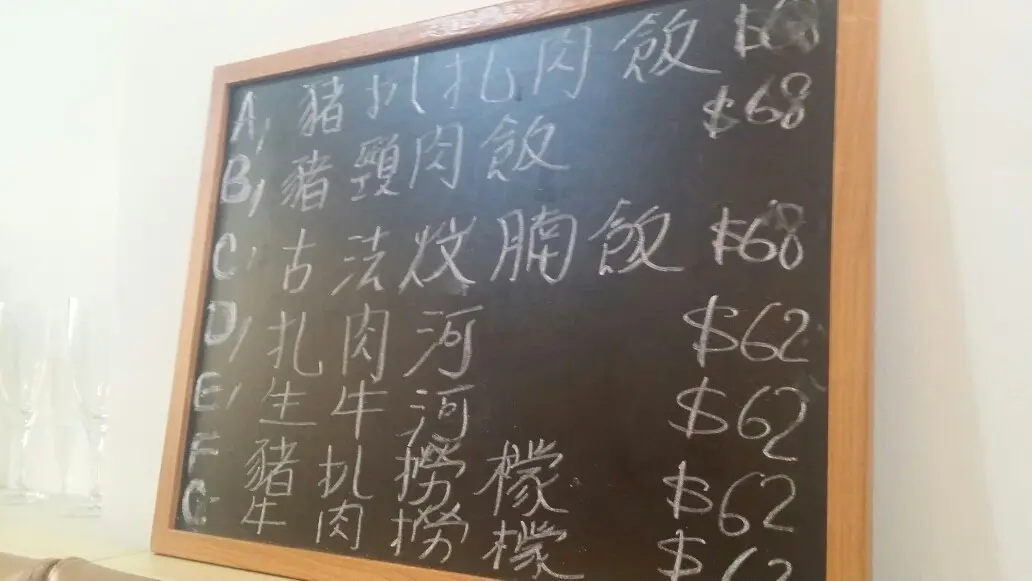 A, 豬扒扎肉飯 $68
B, 豬頸肉飯 $68
C, 古法炆腩飯 $68
D, 扎肉河 $62
E, 生牛河 $62
F 豬扒撈檬 $62
G 牛肉撈檬 $62